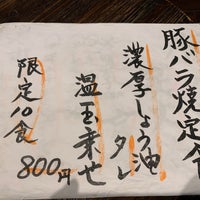 豚バラ焼定食
濃厚しょう油
タレ
温玉乗せ
限定10食
800円